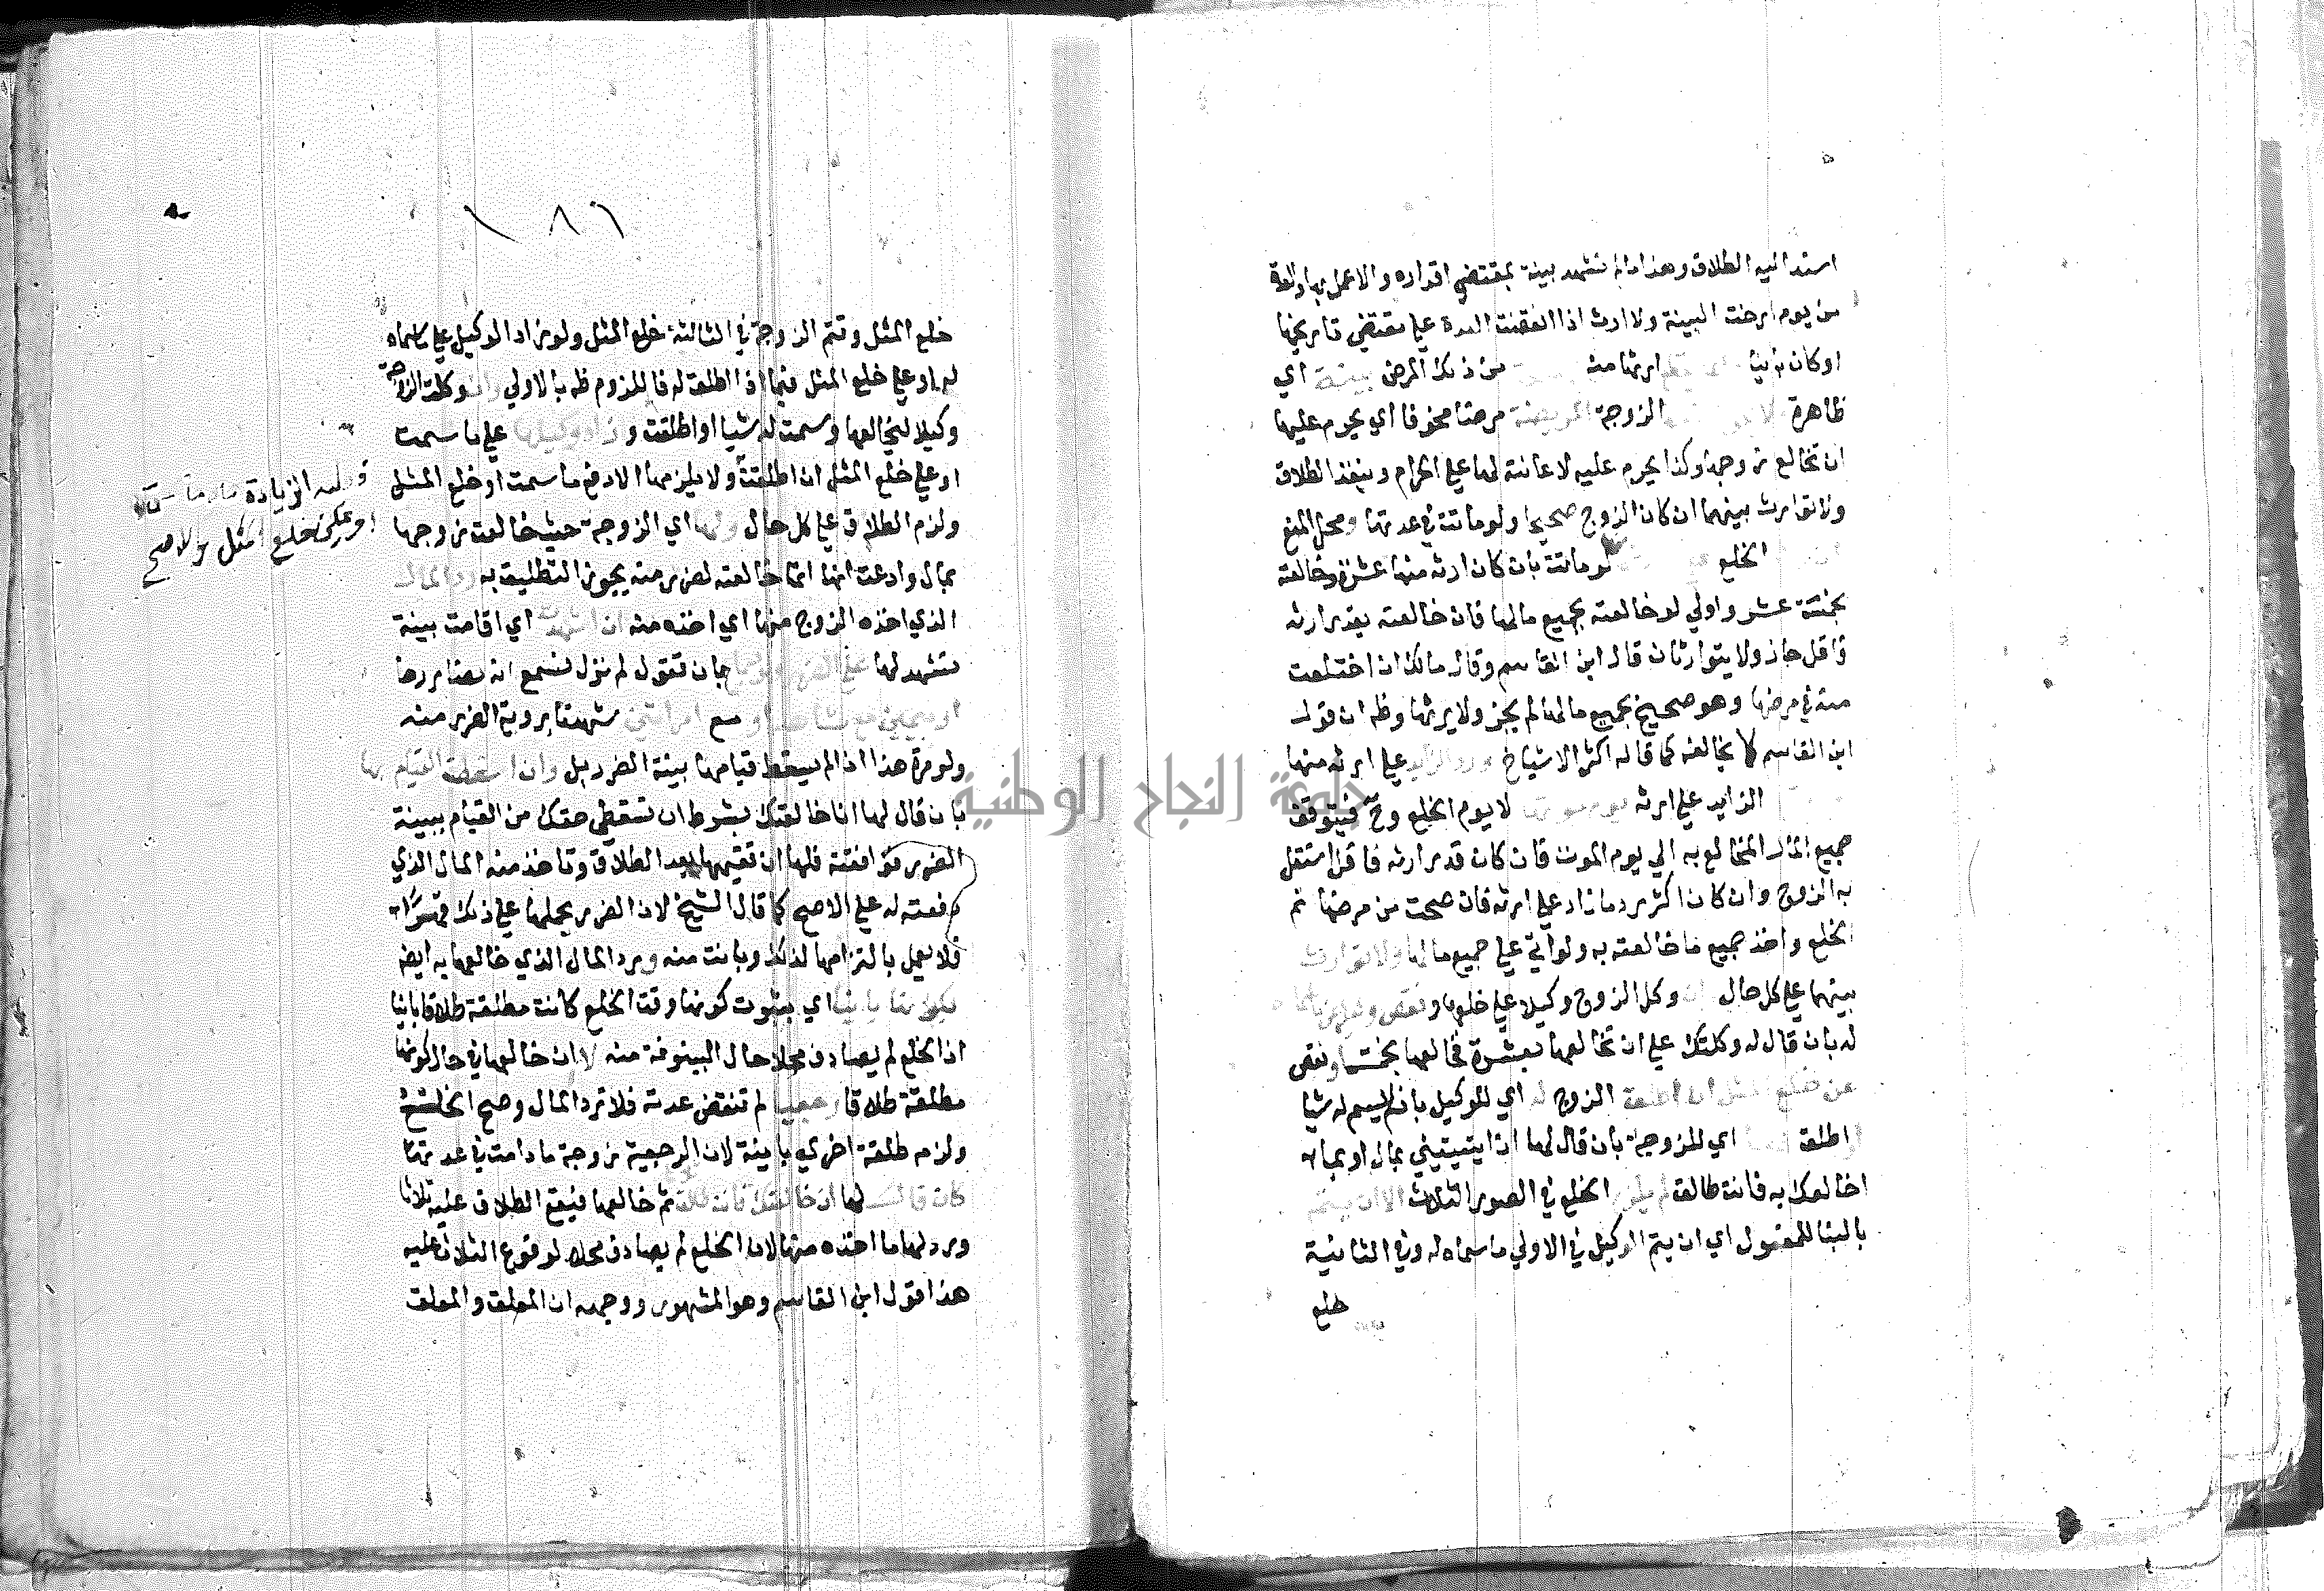 اسند اليه الطلاق وهذا ما لم تشهد بينة بمقتضي اقراره والا عمل بها والعدة
من يوم ارخت البينة ولا ارث اذا انقضت العدة علي مقتضي تاريخها
او كان باينا ارثها منه من ذلك المرض بينة اي
ظاهرة الزوجة المريضة مرضا مخوفا اي يحرم عليها
ان تخالع زوجها وكذا يحرم عليه لاعانته لها علي الحرام وينفذ الطلاق
ولا توارث بينهما ان كان الزوج صحيحا ولو ماتت في عدتها ومحل المنع
ان الخلع لو ماتت بان كان ارثه منها عشرة وخالعته
بخمسة عشر واولي لو خالعته بجميع مالها فان خالعته بقدر ارثه
فاقل جاز ولا يتوارثان قال ابن القاسم وقال مالك ان اختلعت
منه في مرضها وهو صحيح بجميع مالها لم يجز ولا يرثها وظ ان قول
ابن القاسم لا يخالفه كما قاله اكثر الاشياخ ورد الزايد علي ارثه منها
الزايد علي ارثه يوم موتها لا يوم الخلع وح فيتوقف
جميع المال المخالع به الي يوم الموت فان كان قدر ارثه فاقل استقل
به الزوج وان كان اكثر رد ما زاد علي ارثه فان صحت من مرضها تم
الخلع واخذ جميع ما خالعته به ولو اتي علي جميع مالها ولا توارث
بينهما علي كل حال وان وكل الزوج وكيلا علي خلعها ونقص وكيله عن ما سماه
له بان قال له وكلتك علي ان تخالعها بعشرة فخالعها بخمسة او نقص
عن خلع المثل ان اطلق الزوج له اي للوكيل بان لم يسم له شيا
او اطلق لها اي للزوجة بان قال لها ان ايتيتيني بمال او بما
اخالعك به فانت طالق لم يلزم الخلع في الصور الثلاث الا ان يتم
بالبنا للمفعول اي ان يتم الوكيل في الاولي ما سماه له وفي الثانية
خلع
١٨٦
خلع المثل وتتم الزوجة في الثالثة خلع المثل ولو زاد الوكيل علي ما سماه
له او علي خلع المثل فيما اذا اطلق له فاللزوم ظ بالاولي وان وكلت الزوجة
وكيلا ليخالعها وسمت له شيا او اطلقت وزاد وكيلها علي ما سمت
او علي خلع المثل ان اطلقت ولا يلزمها الا دفع ما سمت او خلع المثل
ولزم الطلاق علي كل حال ولها اي الزوجة حيث خالعت زوجها
بمال وادعت انها انما خالعته لضرر منه يجوز التطليق به رد المال
الذي اخذه الزوج منها اي اخذه منه ان شهدت اي اقامت بينة
تشهد لها علي الضرر ولو بسماع بان تقول لم نزل نسمع انه يضاررها
او بيمين مع شاهد او مع امراتين شهدتا بروية الضرر منه
ولو مرة هذا اذا لم يسقط قيامها ببينة الضرر بل وان اسقطت القيام بها
بان قال لها انا خالعتك بشرط ان تسقطي حقك من القيام ببينة
الضرر فوافقته فلها ان تقيمها بعد الطلاق وتاخذ منه المال الذي
دفعته له علي الاصح كما قال الشيخ لان الضرر يحملها علي ذلك قهرا
فلا يعمل بالتزامها لذلك وبانت منه ورد المال الذي خالعها به ايضا
بكونها باينا اي بثبوت كونها وقت الخلع كانت مطلقة طلاقا باينا
اذ الخلع لم يصادف محلا حال البينونة منه لا ان خالعها في حال كونها
مطلقة طلاقا رجعيا لم تنقض عدته فلا ترد المال وصح الخلع
ولزمه طلقة اخري باينة لان الرجعية زوجة ما دامت في عدتها
كان قال لها ان خالعتك فانت طالق ثم خالعها فيقع الطلاق عليه ثلاثا
ورد لها ما اخذه منها لان الخلع لم يصادف محلا لوقوع الثلاث عليه
هذا قول ابن القاسم وهو المشهور ووجهه ان المعلق والمعلق
الزيادة
خلع المثل والاصح
جامعة النجاح الوطنية